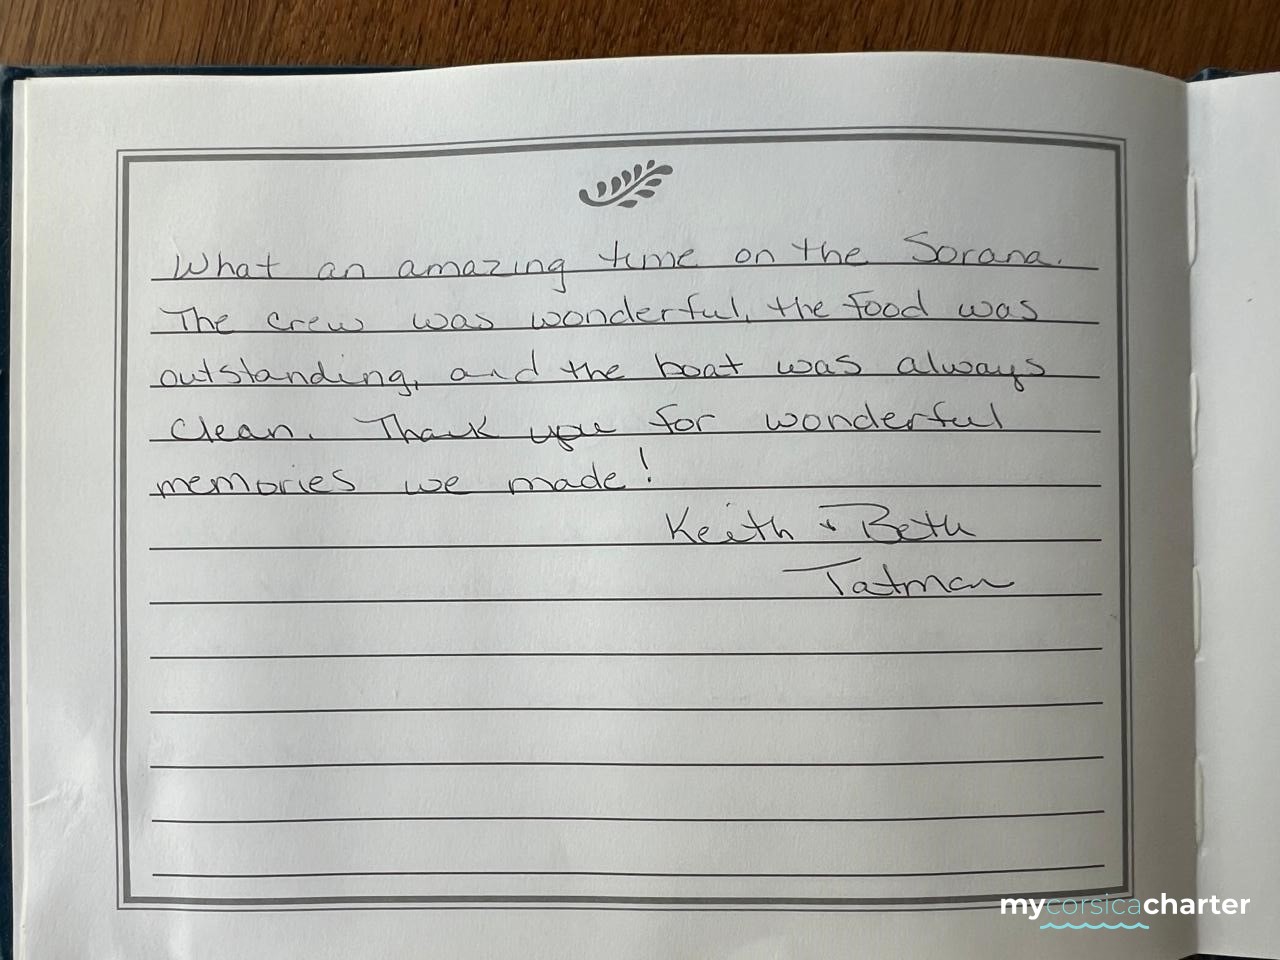 What an amazing time on the Sorana.
The crew was wonderful, the food was
outstanding, and the boat was always
clean. Thank you for wonderful
memories we made!
Keith + Beth
Tatman
mycorsicacharter